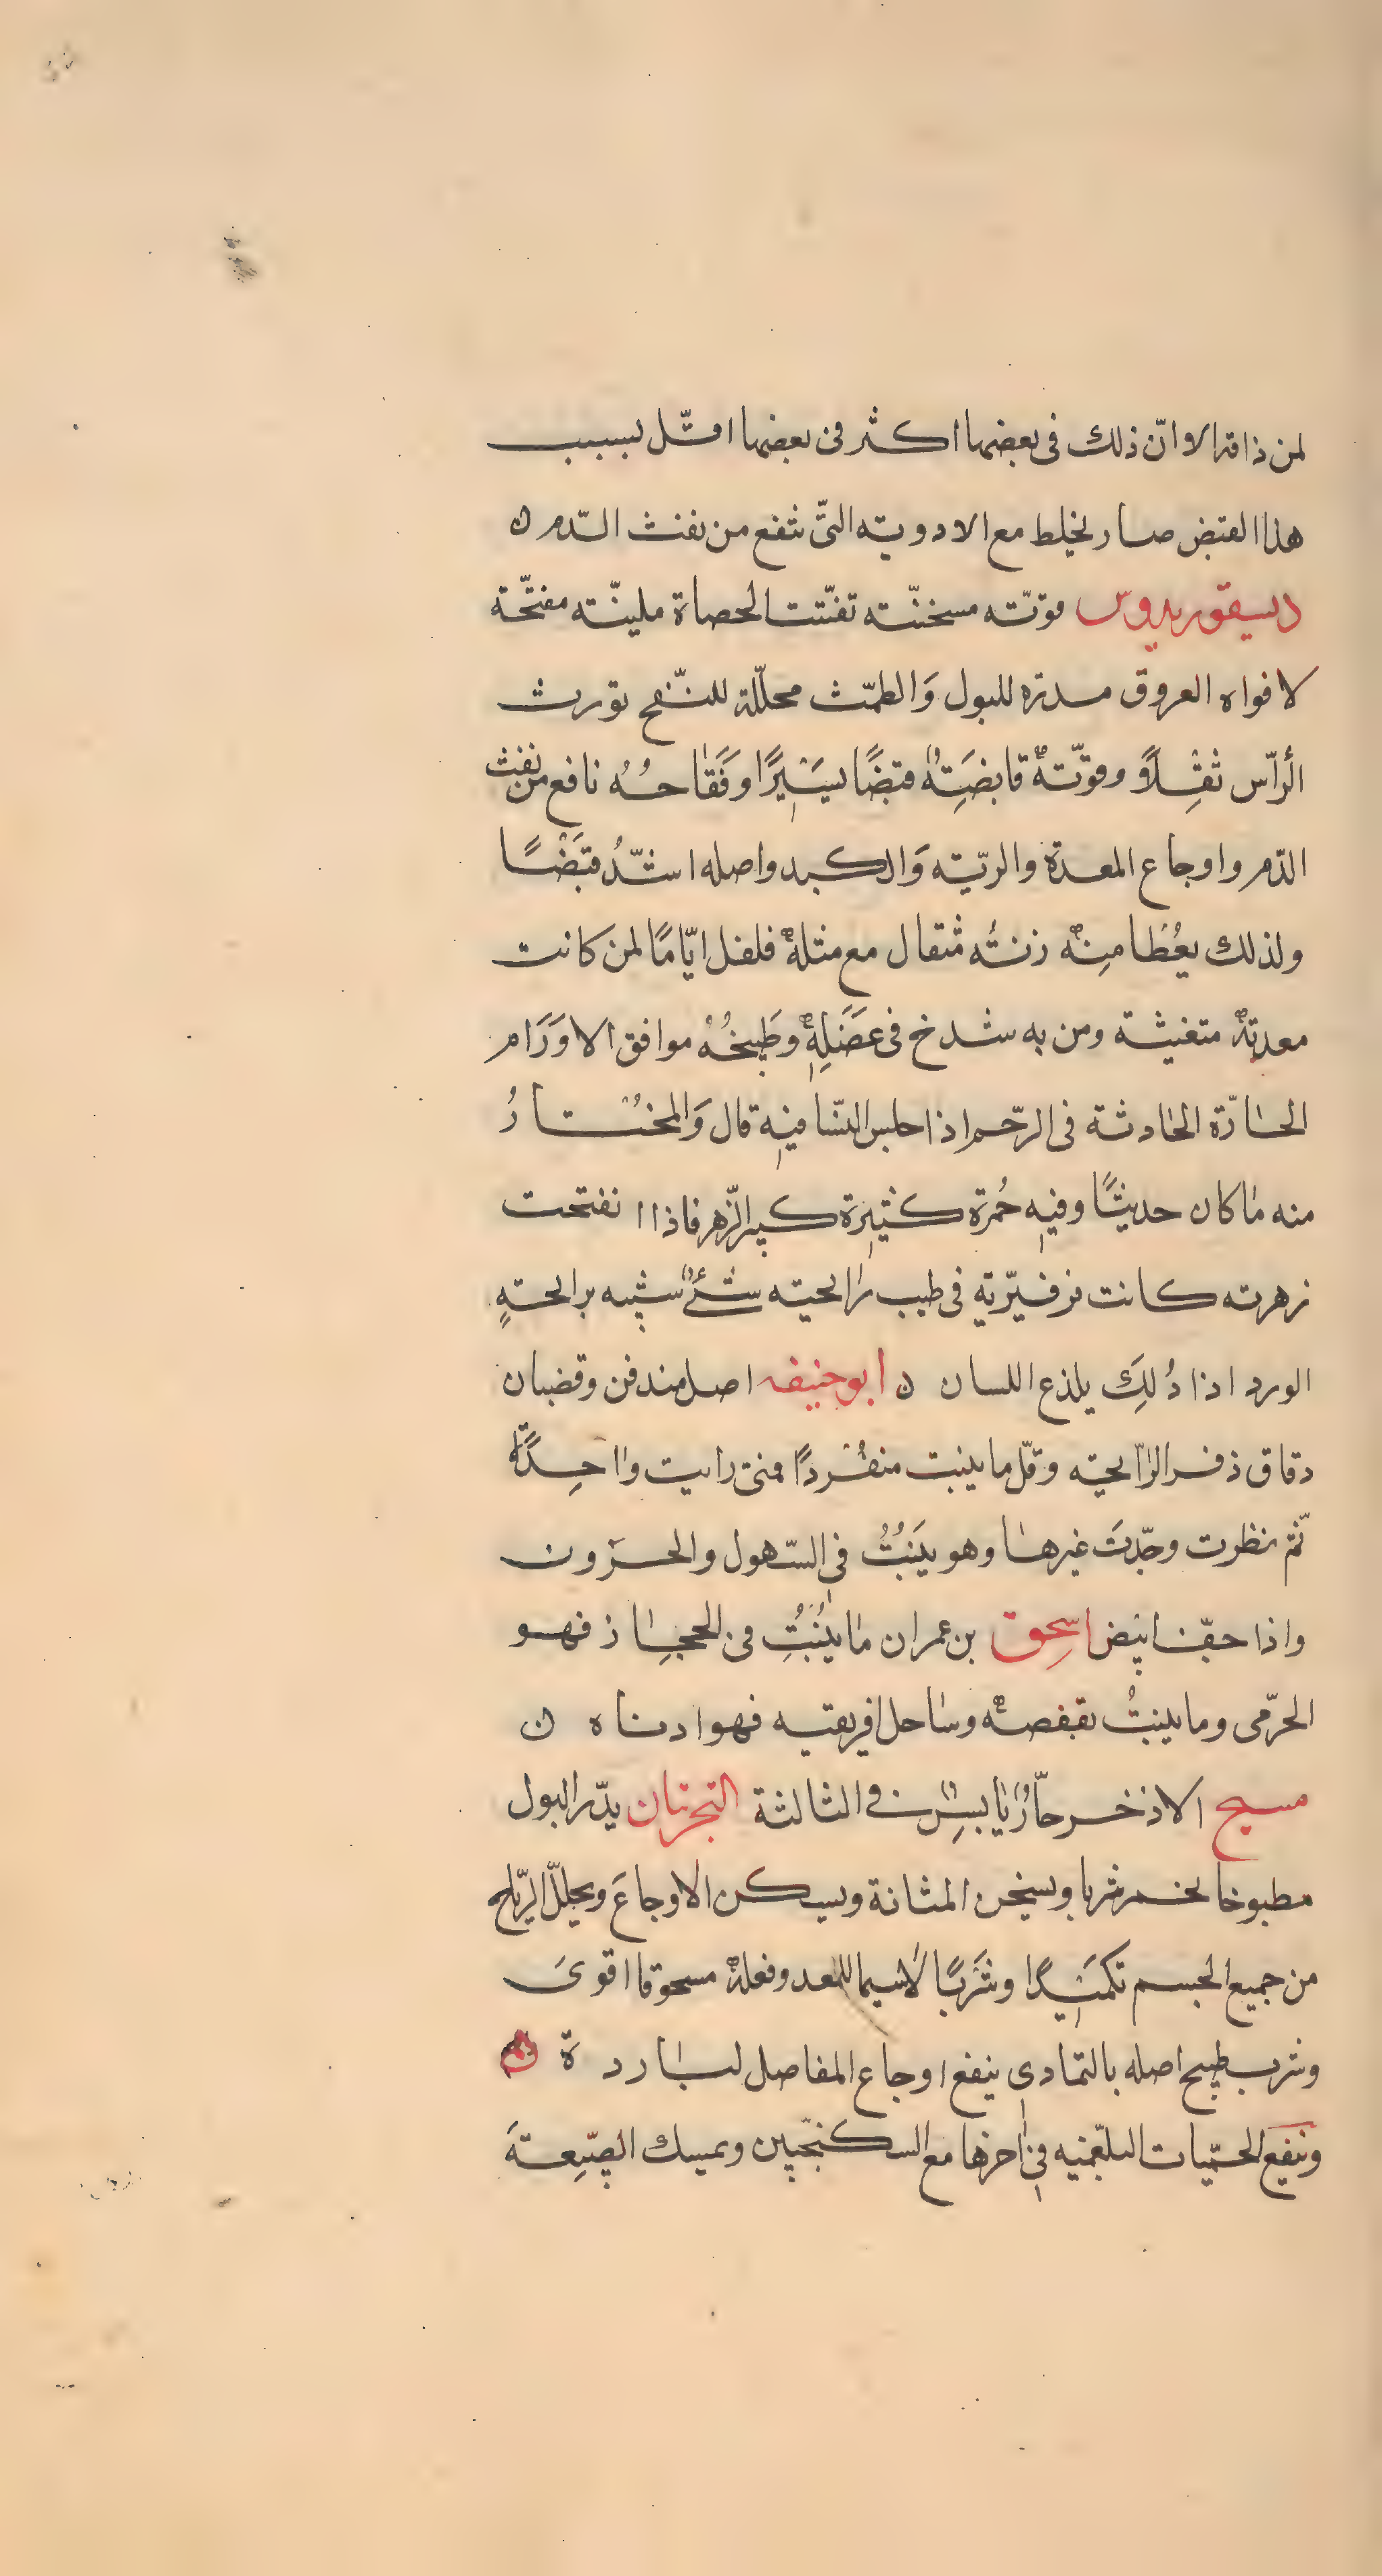 لمن ذاقه الا وانّ ذلك فى بعضها اكثر فى بعضها اقـّل بسبب
هذا القبض صار يخلط مع الادويته التّى تنفع من نفث الـدّم ن
ديسقوريدوس قوتّه مسخنّته تفتّت الحصاة ملينّته مفتحّة
لافواه العروق مدرّه للبول وَالطمّث محللّة للنّفخ تورث
الرأّس ثقِلاً وقوّتهٌ قابضَتِهٌ قبضًا يسَيْرًا وفَقَاحُهُ نافع من نفث
الدّم واوجاع المعدة والريّته وَالكبد واصله اشـدُّ قبَضًا
ولذلك يعُطا مِنهٌ زنتُه مثقال مع مثلهٌ فلفل ايّامًا لمن كانت
معدتهٌ متغنيثة ومن به شدخ فى عضَلِهٌ وطَبيخُهُ موافق الاورَام
الحارّة الحادثة فى الرّحم اذا جلس النّسا فيه قال وَالمختارُ
منه ماكان حديثًا وفيه حُمرة كثيرة كبير الزّهر فاذا انفتحت
زهرته كانت فرفيرّيه فى طيب رايحيته شئٌ شبيه برايحتهٍ
الورد اذا دُلِكَ يلذع اللسان ن ابوحنيفه اصل مندفن وقضبان
دقاق ذفر الرّايحيته وقلّ ما ينبت منفُردًا فمتى رايت واحِدًةً
ثّم نظرت وجدّتَ غيرها وهو ينَبُتُ فى السّهول والحزون
واذا جفّ ابيض اسحِق بن عمران ما ينُبُتِ فى الحجاز فهو
الحرّمى وما ينبتُ بقفصهٌ وساحل افريقيه فهوا دناه ن
مسيح الاذخر حآرٌ يابسٌ فى الثالثة التجرتان يدّر البول
مطبوخا بخمر شربا ويسخن المثانة ويسكن الاوجاعَ ويحللّ الرّياح
من جميع الجسم تكميَدًا وشَربًا لاسيما للمعد وفعلهٌ مسحوقا اقوىَ
وشرب طبيخ اصله بالتمادى ينفع اوجاع المفاصل لباردة
وينفع الحمّيات البلغّميه فى اخرها مع السكنجبّين ويمسك الطبّيعةَ